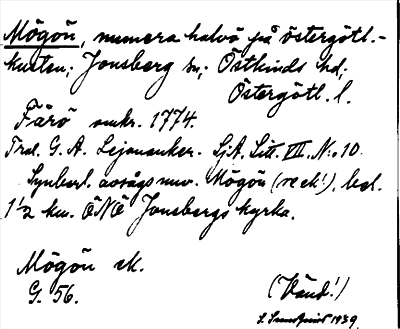 Mögön, numera halvö på östergötl.-
kusten; Jonsberg sn; Östkinds hd;
Östergötl. l.
Färö omkr. 1774.
Trol. G. A. Lejonanker. SjA. Lit. VII. No. 10.
Synbarl. avsågs nuv. Mögön (se ek!), bel.
1½ km. ÖNÖ Jonsbergs kyrka.
Mögön ek.
G. 56.
(Vänd!)
1939.